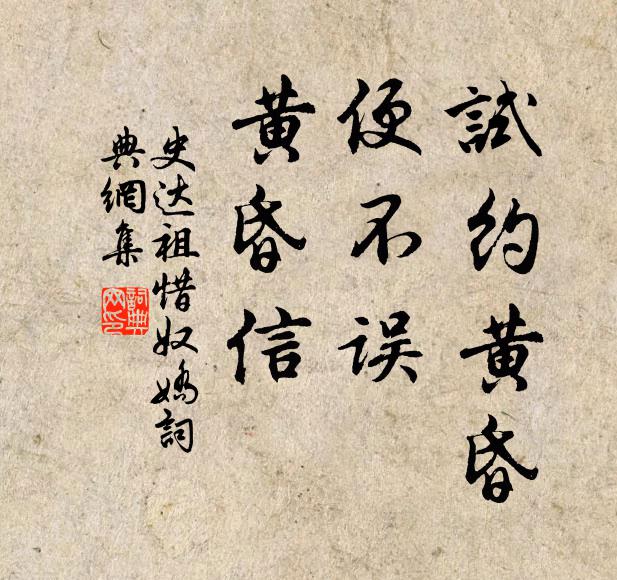 試约黄昏
便不误
黄昏信
史达祖惜奴嬌詞
典網集
詞典
网印